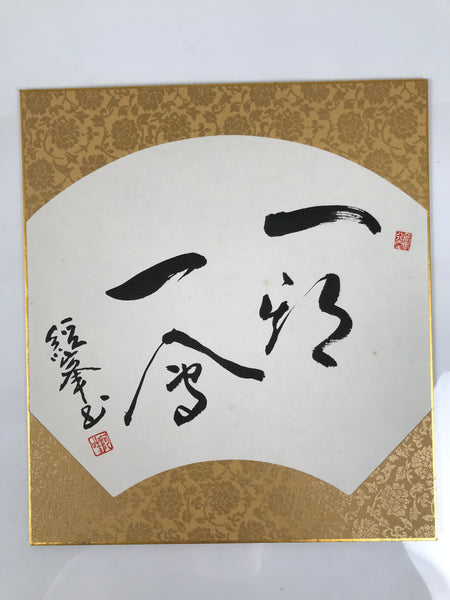 一期
一會
峯書